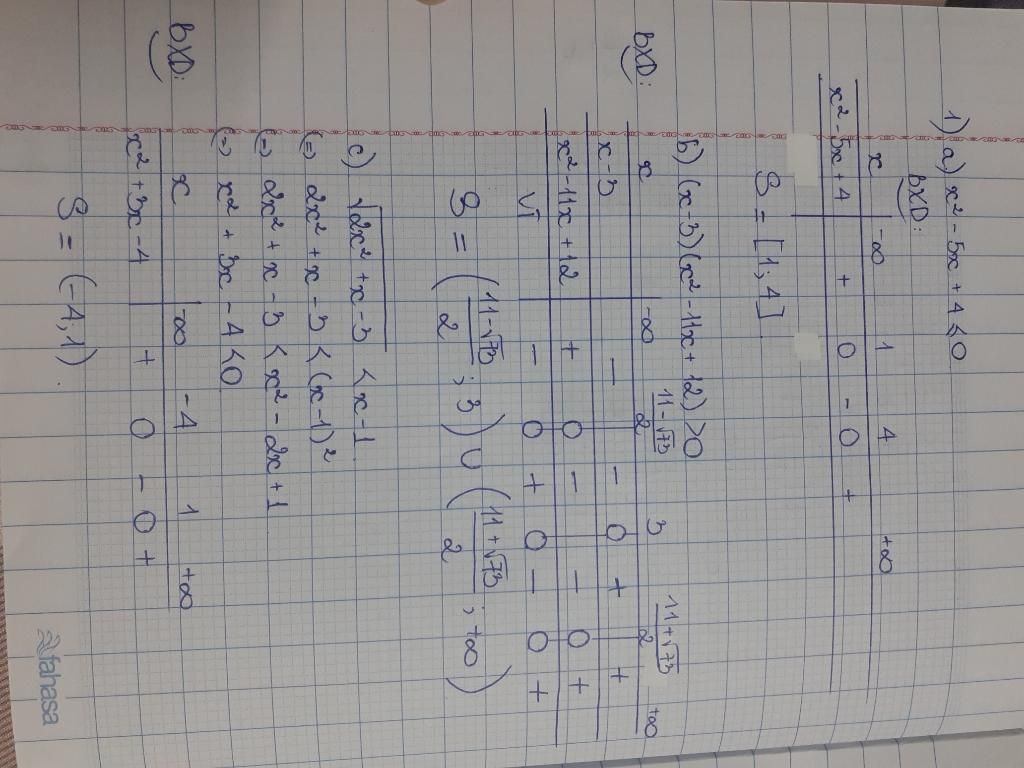 1) a) x² - 5x + 4 ≤ 0
BXD:
x -∞ 1 4 +∞
x² - 5x + 4 + 0 - 0 +
S = [1; 4]
b) (x-3)(x² - 11x + 12) > 0
BXD:
x -∞ (11-√73)/2 3 (11+√73)/2 +∞
x-3 - - 0 + +
x² - 11x + 12 + 0 - - 0 +
VT - 0 + 0 - 0 +
S = ((11-√73)/2; 3) ∪ ((11+√73)/2; +∞)
c) √(2x² + x - 3) < x - 1
(=) 2x² + x - 3 < (x-1)²
(=) 2x² + x - 3 < x² - 2x + 1
(=) x² + 3x - 4 < 0
BXD:
x -∞ -4 1 +∞
x² + 3x - 4 + 0 - 0 +
S = (-4; 1)
fahasa